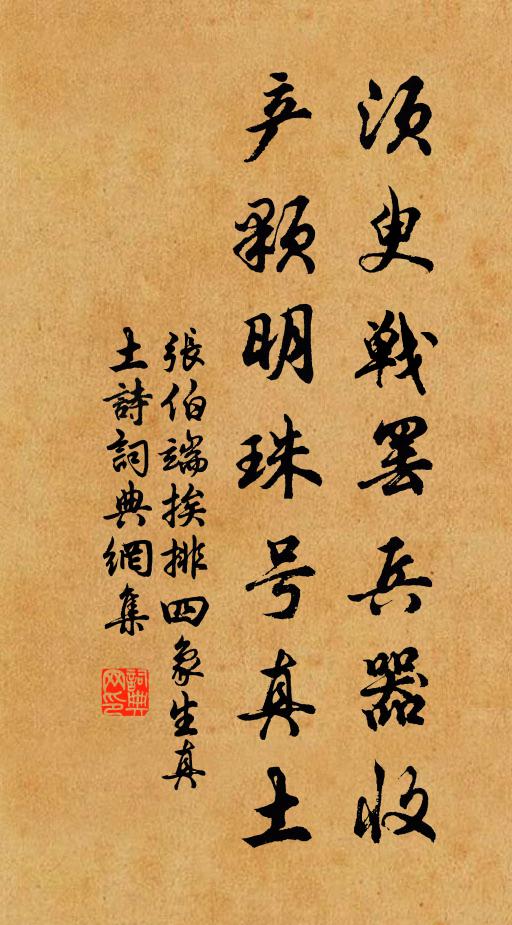 須臾戰罷兵器收
产顆明珠号真土
張伯端挨排四象生真
土詩詞典網集
詞典
网印